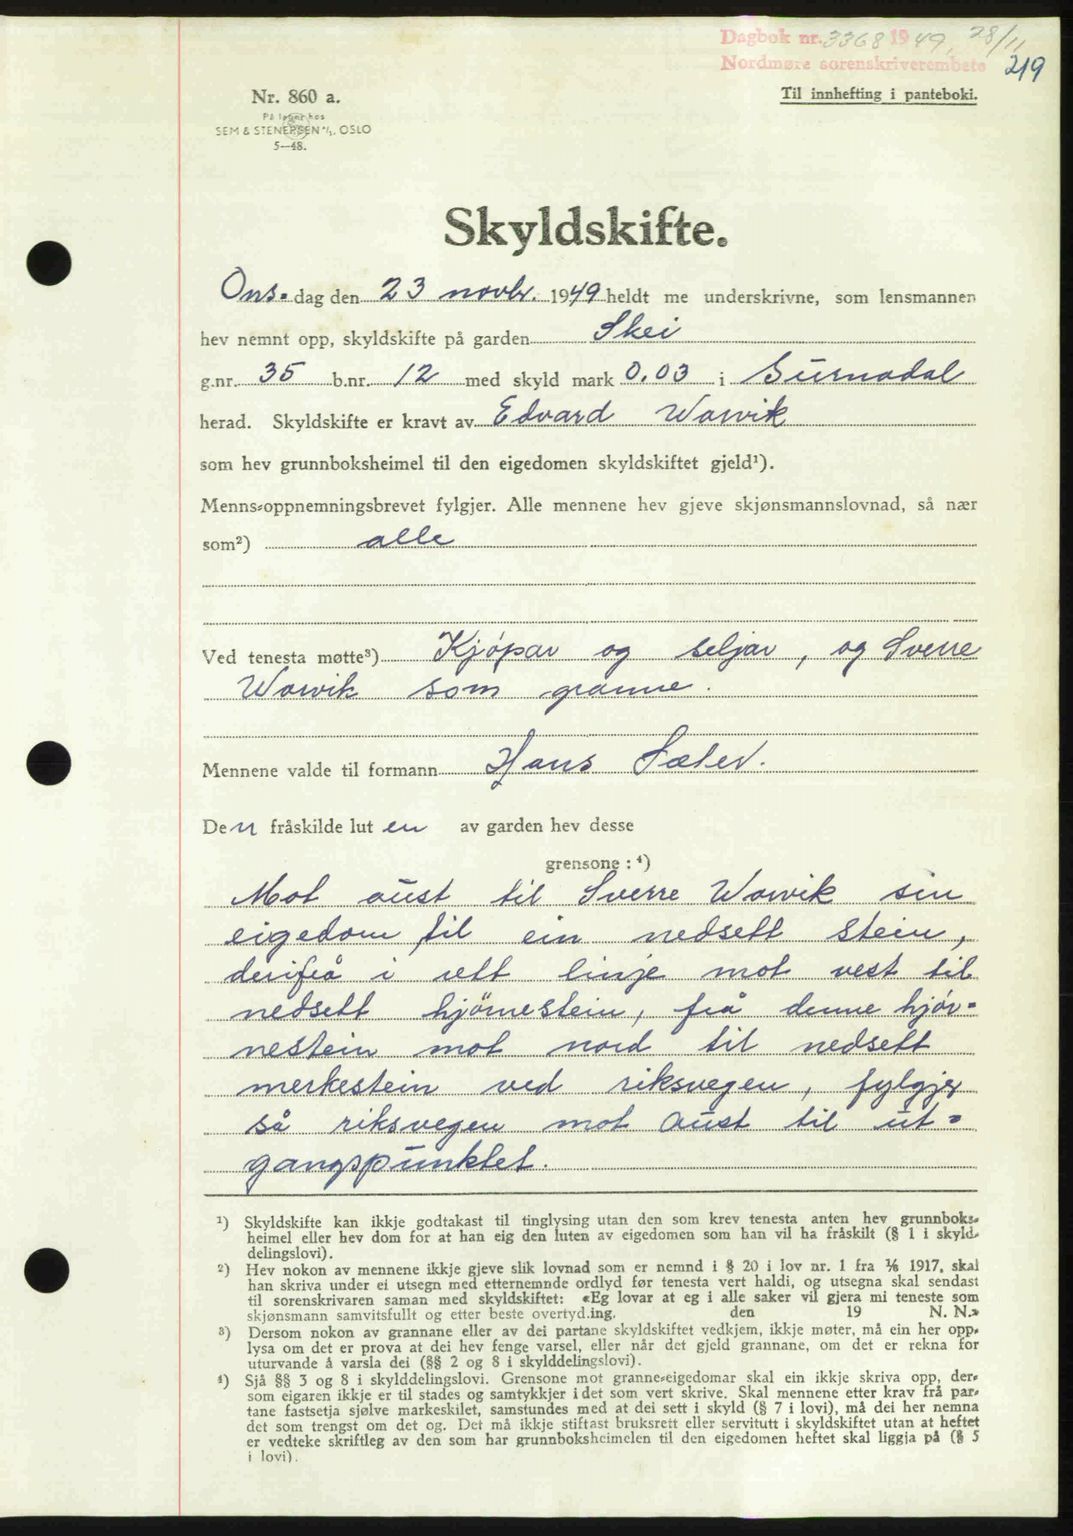 Dagbok nr. 3368 1949, 28/11
Nordmøre sorenskriverembete
219
Nr. 860 a.
På lager hos
SEM & STENERSEN A/S, OSLO
5—48.
Til innhefting i panteboki.
Skyldskifte.
Ons-dag den 23 novbr. 1949 heldt me underskrivne, som lensmannen
hev nemnt opp, skyldskifte på garden Skei
g.nr. 35 b.nr. 12 med skyld mark 0,03 i Surnadal
herad. Skyldskifte er kravt av Edvard Worvik
som hev grunnboksheimel til den eigedomen skyldskiftet gjeld¹).
Menns-oppnemningsbrevet fylgjer. Alle mennene hev gjeve skjønsmannslovnad, så nær
som²) alle
Ved tenesta møtte³) Kjöpar og seljar, og Sverre
Worvik som granne.
Mennene valde til formann Hans Sæter.
Den fråskilde lut en av garden hev desse
grensone : ⁴)
Mot aust til Sverre Worvik sin
eigedom til ein nedsett stein,
derifrå i rett linje mot vest til
nedsett hjörnestein, frå denne hjör-
nestein mot nord til nedsett
merkestein ved riksvegen, fylgjer
så riksvegen mot aust til ut-
gangspunktet.
¹) Skyldskifte kan ikkje godtakast til tinglysing utan den som krev tenesta anten hev grunnboks-
heimel eller hev dom for at han eig den luten av eigedomen som han vil ha fråskilt (§ 1 i skyld-
delingslovi).
²) Hev nokon av mennene ikkje gjeve slik lovnad som er nemnd i § 20 i lov nr. 1 fra ⅙ 1917, skal
han skriva under ei utsegn med etternemnde ordlyd før tenesta vert haldi, og utsegna skal sendast
til sorenskrivaren saman med skyldskiftet: «Eg lovar at eg i alle saker vil gjera mi teneste som
skjønsmann samvitsfullt og etter beste overtyd.ing. den 19 N. N.»
³) Dersom nokon av grannane eller av dei partane skyldskiftet vedkjem, ikkje møter, må ein her opp-
lysa om det er prova at dei hev fenge varsel, eller når det gjeld grannane, om det er rekna for
uturvande å varsla dei (§§ 2 og 8 i skylddelingslovi).
⁴) Sjå §§ 3 og 8 i skylddelingslovi. Grensone mot granne-eigedomar skal ein ikkje skriva opp, der-
som eigaren ikkje er til stades og samtykkjer i det som vert skrive. Skal mennene etter krav frå par-
tane fastsetja sjølve markeskilet, samstundes med at dei sett i skyld (§ 7 i lovi), må dei her nemna
det som trengst om det og. Det må ikkje stiftast bruksrett eller servitutt i skyldskiftet utan at heftet
er vedteke skriftleg av den som har grunnboksheimelen til den eigedomen heftet skal liggja på (§ 5
i lovi).